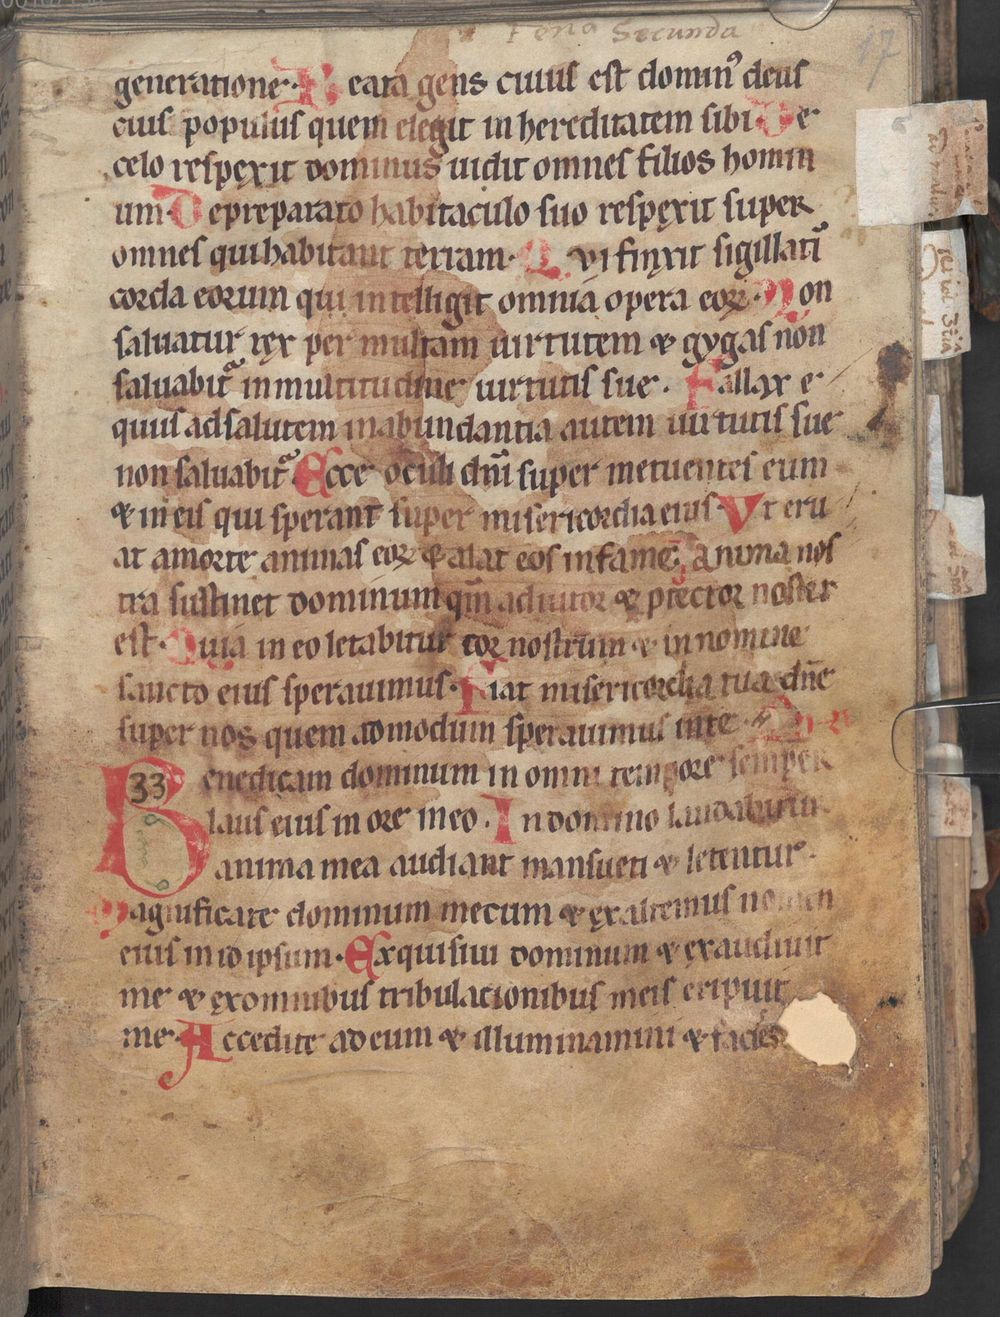 Feria Secunda
17
generatione. Beata gens cuius est domin⁹ deus
eius populus quem elegit in hereditatem sibi De
celo respexit dominus uidit omnes filios homin
um. De preparato habitaculo suo respexit super
omnes qui habitant terram. Qvi finxit sigillatī
corda eorum qui intelligit omnia opera eoꝝ. Non
saluatur rex per multam uirtutem & gygas non
saluabit᷑ in multitudine uirtutis sue. Fallax e
quus ad salutem in abundantia autem uirtutis sue
non saluabit᷑ Ecce oculi dn̄i super metuentes eum
& in eis qui sperant super misericordia eius. Vt eru
at a morte animas eoꝝ & alat eos in fame, anima nos
tra sustinet dominum qm̄ adiutor & ꝓtector noster
est. Quia in eo letabitur cor nostrum & in nomine
sancto eius sperauimus. Fiat misericordia tua dn̄e
super nos quem admodum sperauimus in te.
33
Benedicam dominum in omni tempore semper
laus eius in ore meo. In domino laudabitur
anima mea audiant mansueti & letentur.
Magnificate dominum mecum & exaltemus nomen
eius in id ipsum. Exquisiui dominum & exaudiuit
me & ex omnibus tribulationibus meis eripuit
me. Accedite ad eum & illuminamini & facies